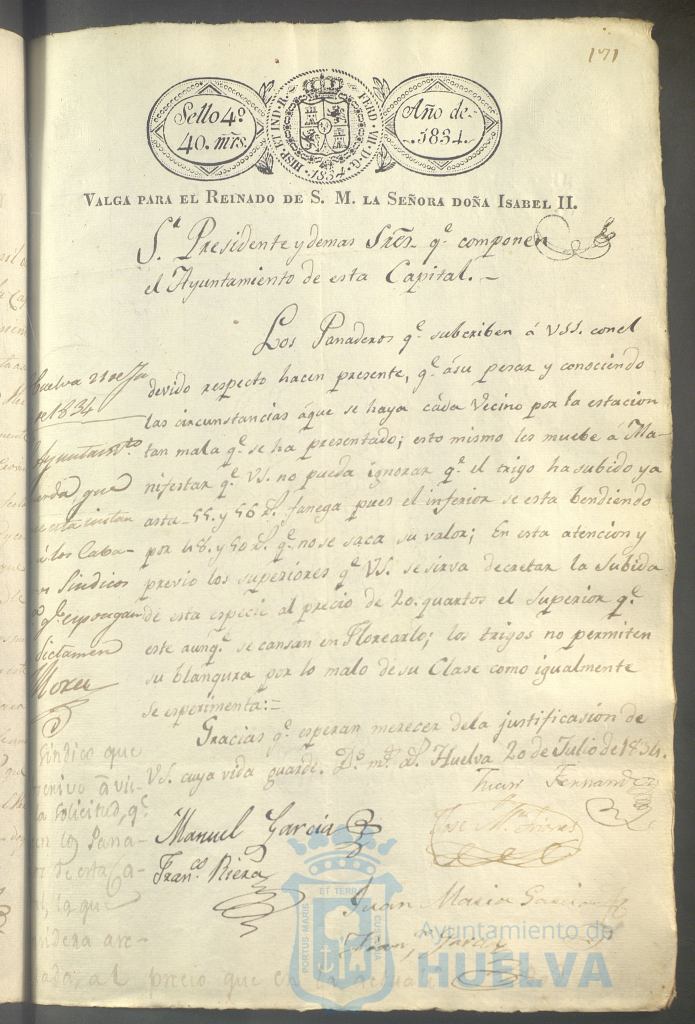 171
Sello 4º
40. mrs.
HISP. ET IND. R. FERD. VII. D. G.
1834
Año de
1834.
VALGA PARA EL REINADO DE S. M. LA SEÑORA DOÑA ISABEL II.
S.r Presidente y demas Sres. q.e componen
el Ayuntamiento de esta Capital.
Los Panaderos q.e subcriben á VSS. con el
devido respecto hacen presente, q.e ásu pesar y conociendo
las circunstancias áque se haya cáda Vecino por la estacion
tan mala q.e se ha presentado; esto mismo les muebe á Ma-
nifestar q.e VS. no pueda ignorar q.e el trigo ha subido ya
asta 55. y 56 r.s fanega pues el inferior se esta bendiendo
por 48. y 50 r.s q.e no se saca su valor; En esta atencion y
previo los superiores q.e VS. se sirva decretar la Subida
de esta especie al precio de 20. quartos el Superior q.e
este aunq.e se cansan en Florearlo; los trigos no permiten
su blanqura por lo malo de su Clase como igualmente
se esperimenta:=
Gracias q.e esperan merecer dela justificasion de
VS. cuya vida guarde. D.s m.s a.s Huelva 20 de Julio de 1834.
Juan Fernandez
Manuel Garcia
Jose M.a
Fran.co Riera
Juan Maria Garcia
Huelva 21 de Ju
de 1834
Ayuntam.to
que
esta instan
á los Caba-
Sindicos
q.e espongan
dictamen
Sindico que
solicitud, q.e
los Pana-
de esta Ca-
la que
al precio que en la
PORTUS MARIS ET TERRAE CUSTODIA
Ayuntamiento de
HUELVA